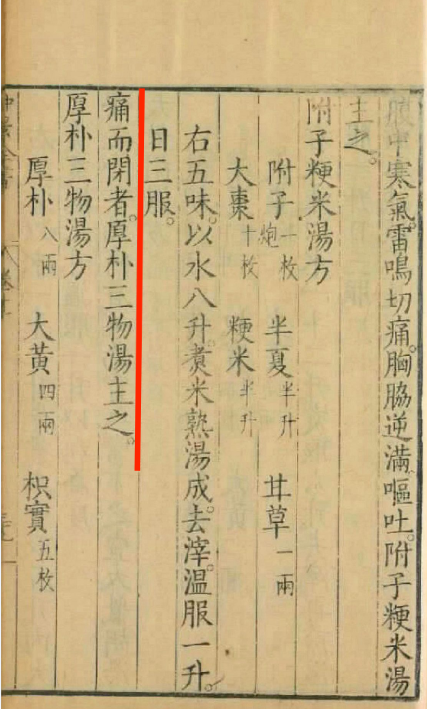 腹中寒氣。雷鳴切痛。胸脇逆滿。嘔吐。附子粳米湯
主之。
附子粳米湯方
附子一枚炮 半夏半升 甘草一兩
大棗十枚 粳米半升
右五味。以水八升。煮米熟湯成。去滓。溫服一升。
日三服。
痛而閉者。厚朴三物湯主之。
厚朴三物湯方
厚朴八兩 大黃四兩 枳實五枚